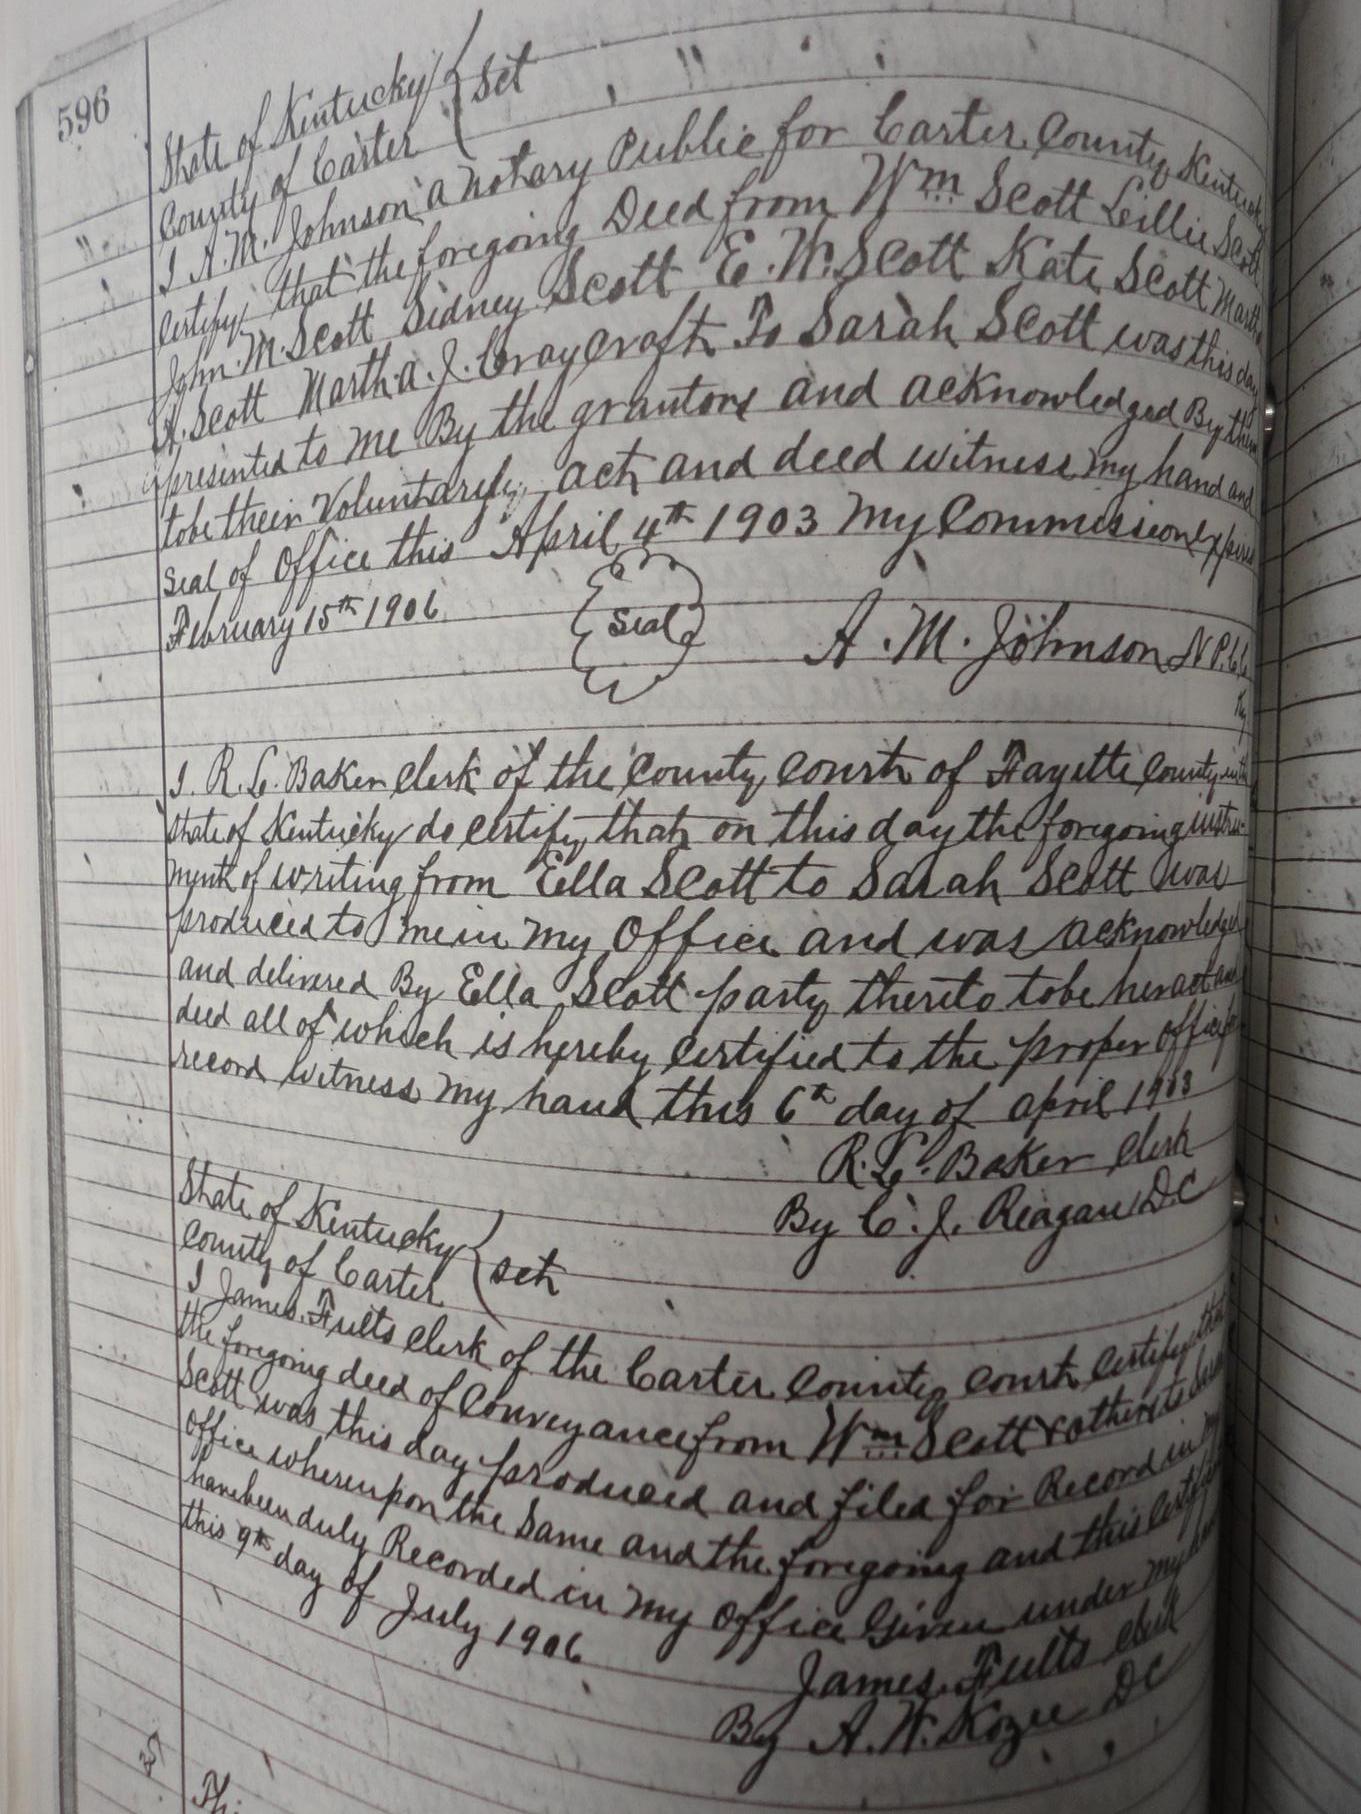 596
State of Kentucky
County of Carter } Sct
I A. M. Johnson a notary Public for Carter County Kentucky
certify that the foregoing Deed from Wm Scott Lillie Scott
John M. Scott Sidney Scott E. W. Scott Kate Scott Martha
A. Scott Martha. J. Craycraft To Sarah Scott was this day
presented to me By the grantors and acknowledged By them
to be their Voluntarily act and deed witness my hand and
seal of Office this April 4th 1903 My Commission expires
February 15th 1906
Seal
A. M. Johnson N P. C. C.
Ky
I. R. L. Baker Clerk of the County Court of Fayette County in the
State of Kentucky do certify that on this day the foregoing instru-
ment of writing from Ella Scott to Sarah Scott was
produced to me in my Office and was acknowledged
and delivered By Ella Scott party thereto to be her act and
deed all of which is hereby certified to the proper office for
record witness my hand this 6th day of april 1903
R. L. Baker Clerk
By C. J. Reagan D.C
State of Kentucky
County of Carter } Sct
I James Fults Clerk of the Carter County Court certify that
the foregoing deed of Conveyance from Wm Scott & others to Sarah
Scott was this day produced and filed for Record in my
Office whereupon the Same and the foregoing and this certificate
have been duly Recorded in my Office Given under my hand
this 9th day of July 1906
James Fults Clerk
By A. W. Kozee DC